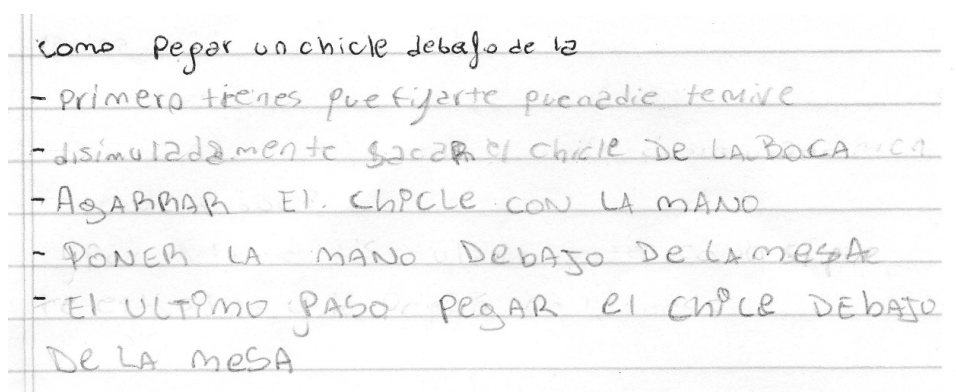 como pegar un chicle debajo de la
- primero tienes que fijarte que nadie te mire
- disimuladamente sacar el chicle DE LA BOCA
- AgARRAR El ChiCLe CON LA mANO
- PONER LA mANO DebAJO De LA mesA
- El ULTimO PASO PegAR el Chice DEbAJO
De LA meSA